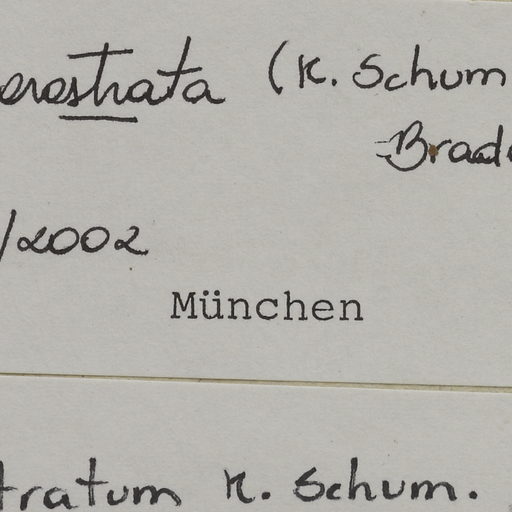 erostrata (K. Schum
Brad
/2002
München
tratum K. Schum.